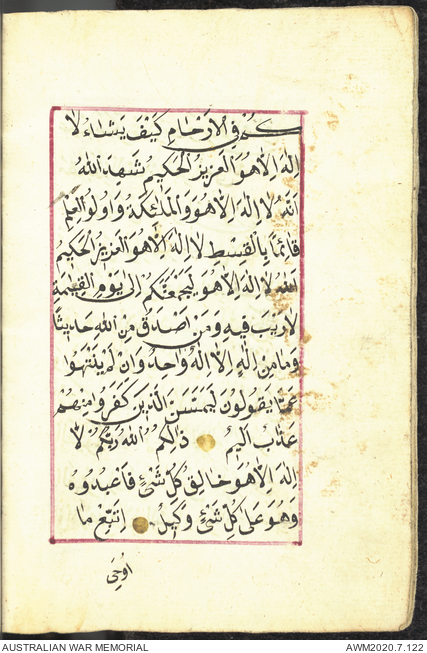 كُمْ فِى الْاَرْحَامِ كَيْفَ يَشَاءُ لَا
اِلٰهَ اِلَّا هُوَ الْعَزِيزُ الْحَكِيمُ شَهِدَ اللّٰهُ
اَنَّهُ لَا اِلٰهَ اِلَّا هُوَ وَالْمَلٰئِكَةُ وَاُولُو الْعِلْمِ
قَائِمًا بِالْقِسْطِ لَا اِلٰهَ اِلَّا هُوَ الْعَزِيزُ الْحَكِيمُ
اَللّٰهُ لَا اِلٰهَ اِلَّا هُوَ لَيَجْمَعَنَّكُمْ اِلٰى يَوْمِ الْقِيٰمَةِ
لَا رَيْبَ فِيهِ وَمَنْ اَصْدَقُ مِنَ اللّٰهِ حَدِيثًا
وَمَا مِنْ اِلٰهٍ اِلَّا اِلٰهٌ وَاحِدٌ وَاِنْ لَمْ يَنْتَهُوا
عَمَّا يَقُولُونَ لَيَمَسَّنَّ الَّذِينَ كَفَرُوا مِنْهُمْ
عَذَابٌ اَلِيمٌ ذٰلِكُمُ اللّٰهُ رَبُّكُمْ لَا
اِلٰهَ اِلَّا هُوَ خَالِقُ كُلِّ شَىْءٍ فَاعْبُدُوهُ
وَهُوَ عَلٰى كُلِّ شَىْءٍ وَكِيلٌ اِتَّبِعْ مَا
اُوحِىَ
AUSTRALIAN WAR MEMORIAL
AWM2020.7.122